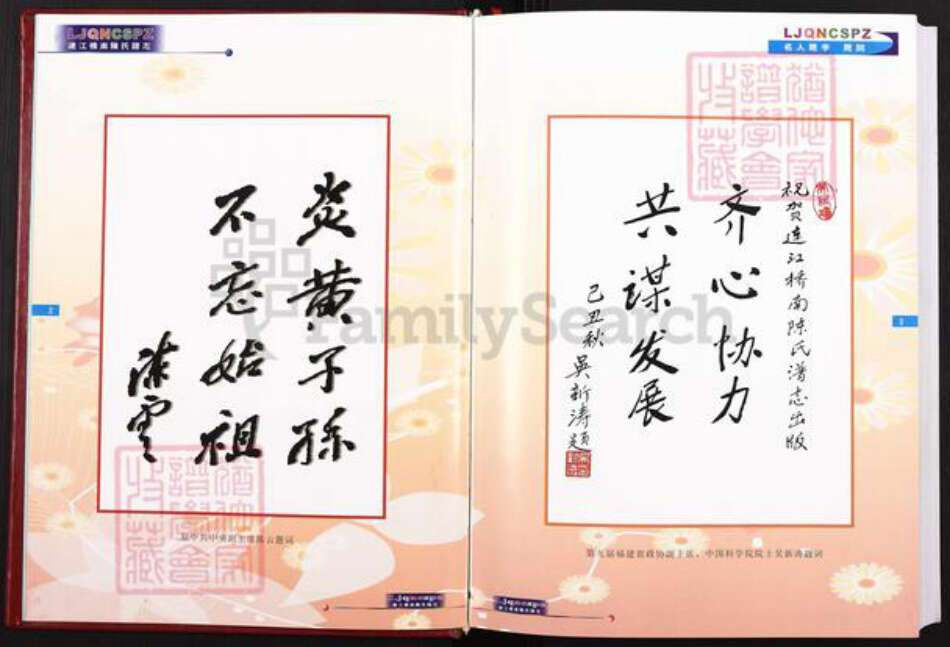 LJQNCSPZ
连江桥南陈氏谱志
炎黄子孙
不忘始祖
陈云
2
LJQNCSPZ
名人题字
祝贺连江桥南陈氏谱志出版
齐心协力
共谋发展
己丑秋 吴新涛题
第九届福建省政协副主席、中国科学院院士吴新涛题词
FamilySearch
猶他家
譜學會
收藏
猶他家
譜學會
收藏